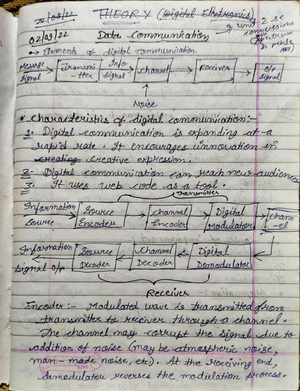 22/03/22
THEORY (Digital Electronics)
02/03/22
Data Communication
→ Elements of digital communication
Message signal
transmitter
Info signal
channel
receiver
o/p signal
Noise
• characteristics of digital communication:-
1. Digital communication is expanding at a
rapid rate. It encourages innovation in
creating creative expression.
2. Digital communication can reach new audiences
3. It uses web code as a tool.
Transmitter
Information Source
Source Encoder
channel Encoder
Digital Modulator
channel
Information Signal o/p
Source Decoder
Channel Decoder
Digital Demodulator
Receiver
Encoder:- Modulated wave is transmitted from
transmitter to receiver through a channel.
The channel may corrupt the signal due to
addition of noise (may be atmospheric noise,
man-made noise, etc). At the receiving end,
demodulator reverses the modulation process.